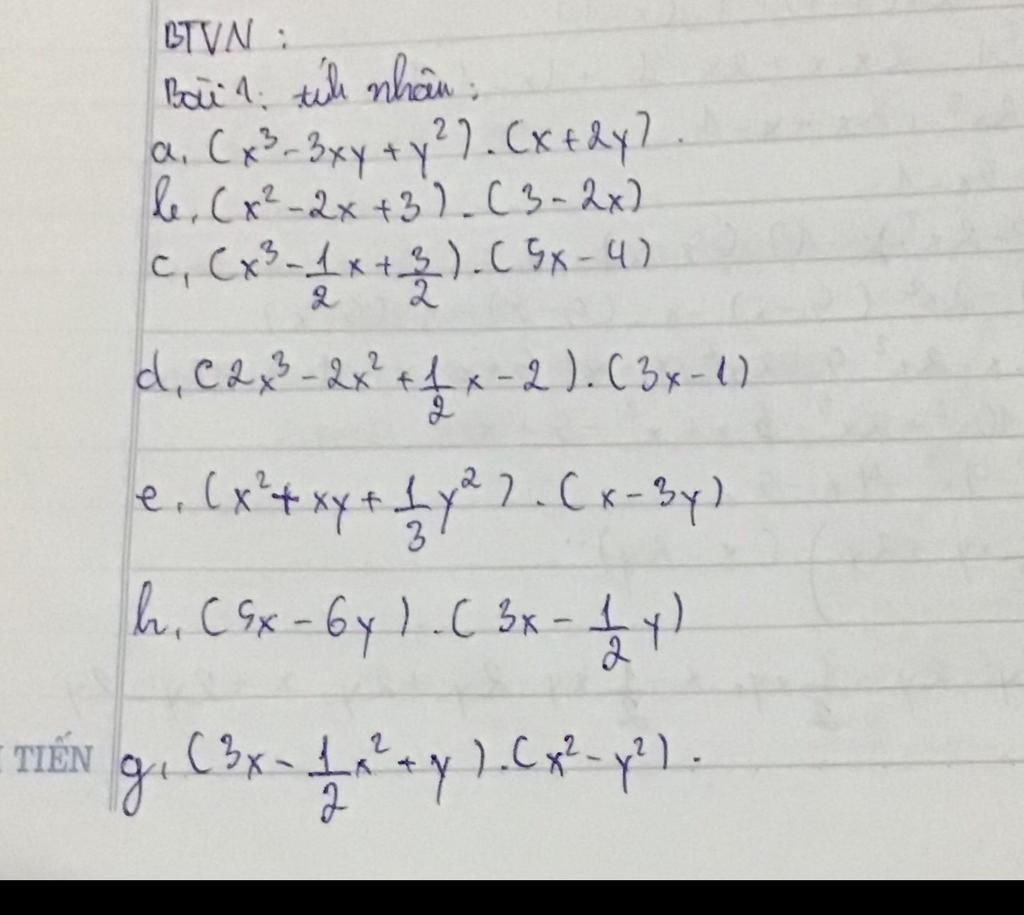 BTVN :
Bài 1: tích nhân :
a, (x³ - 3xy + y²) . (x + 2y) .
b, (x² - 2x + 3) . (3 - 2x)
c, (x³ - 1/2 x + 3/2) . (5x - 4)
d, (2x³ - 2x² + 1/2 x - 2) . (3x - 1)
e, (x² + xy + 1/3 y²) . (x - 3y)
h, (5x - 6y) . (3x - 1/2 y)
TIẾN g, (3x - 1/2 x² + y) . (x² - y²) .